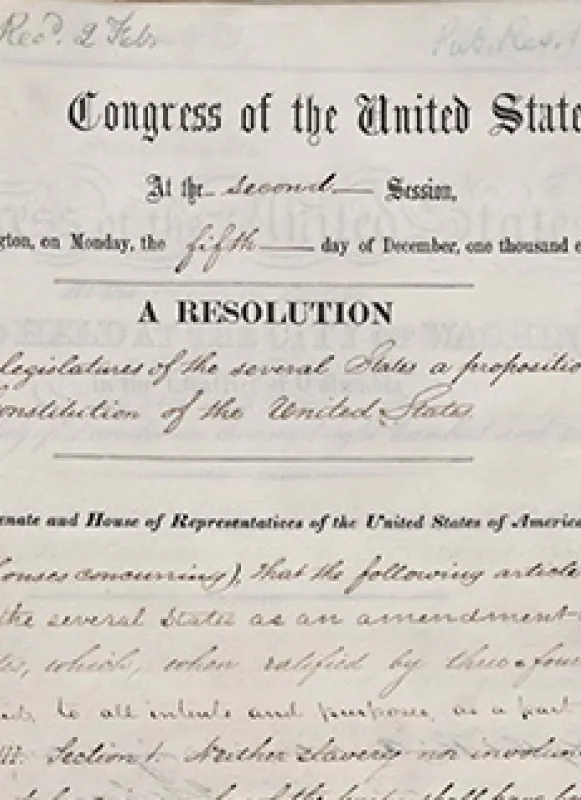 Rec'd. 2 Feb
Pub. Res.
Congress of the United State
At the second Session,
gton, on Monday, the fifth day of December, one thousand e
A RESOLUTION
legislatures of the several States a propositio
onstitution of the United States.
enate and House of Representatives of the United States of America
ouses concurring), that the following article
the several States as an amendment
es, which, when ratified by three-four
to all intents and purposes, as a part
Section 1. Neither slavery nor involun
shall have be